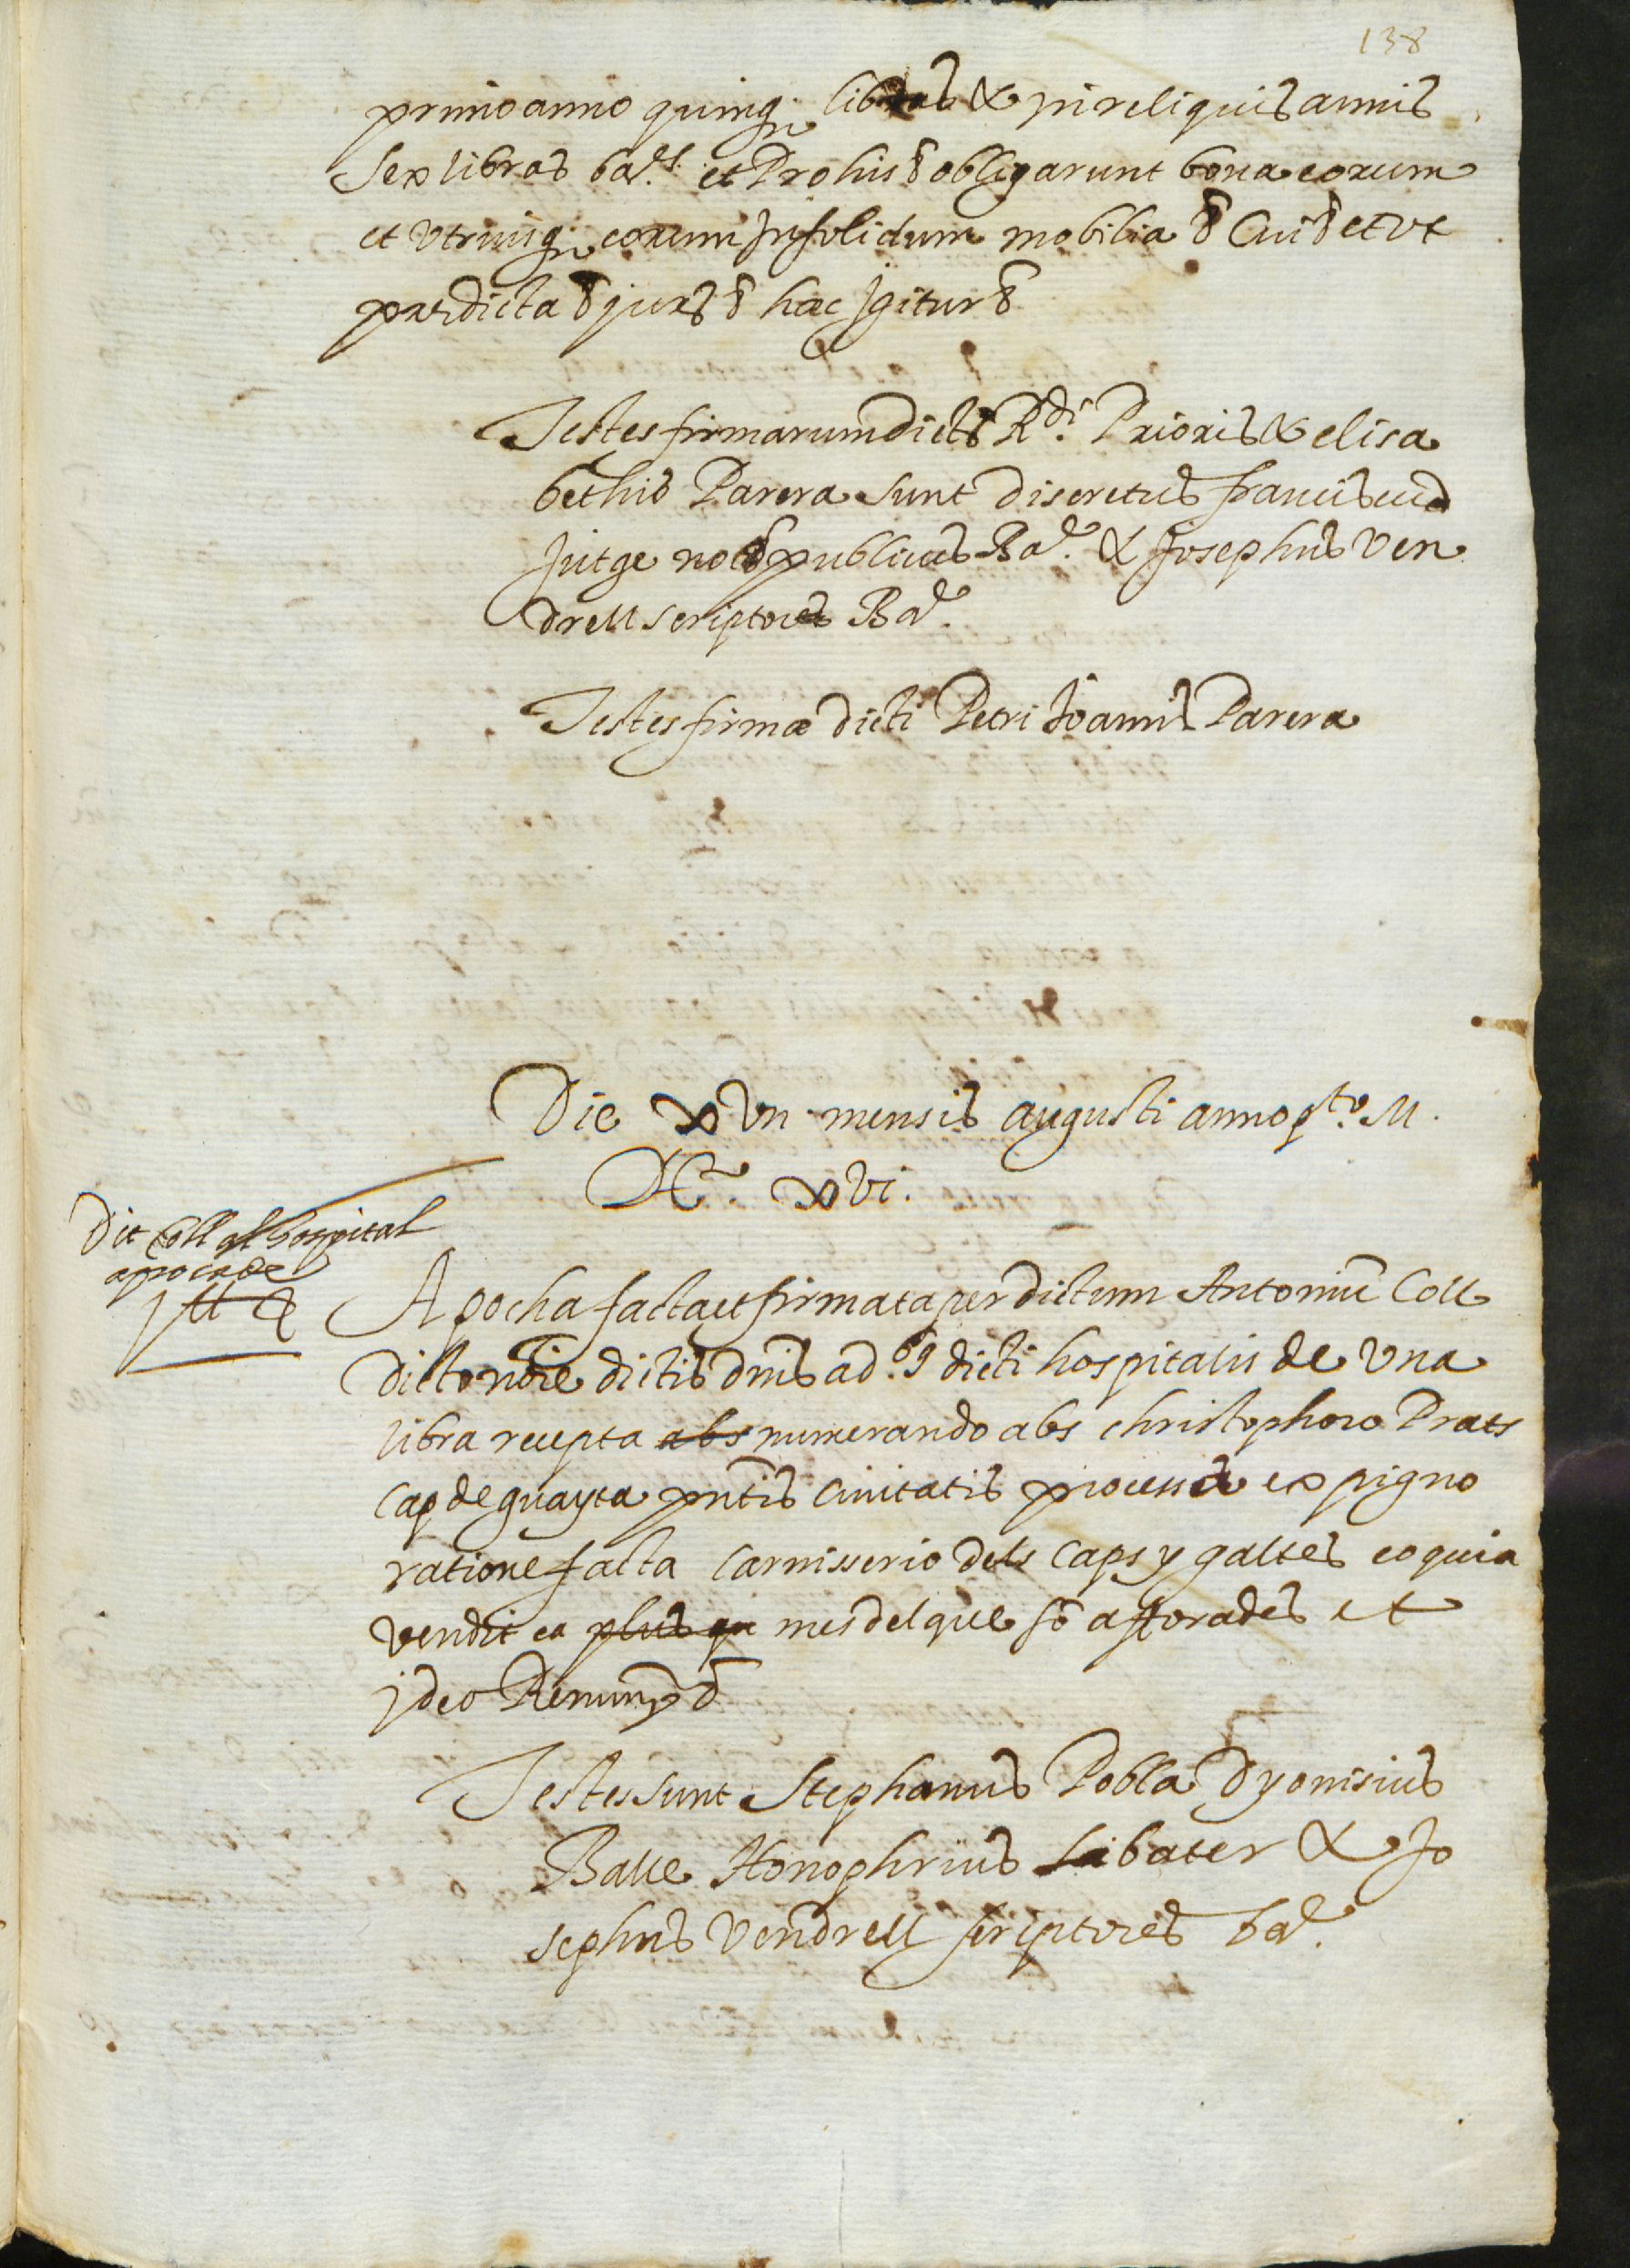 138
primo anno quinq. libras & in reliquis annis
sex libras bar. et Pro his & obligarunt bona eorum
et utriusq. eorum insolidum mobilia & Cui & et ut
prædicta & jur. & hæc igitur &
Testes firmarum dicts. Rdi. Prioris & elisa
bethis Parera sunt discretus franciscus
jutge nots. publicus Bar. & Josephus Ven
drell scriptores Bar.
Testes firmæ dicti Petri Joannis Parera
Die xvii mensis augusti anno pto. M.
DC. xvi.
Dit Coll al hospital
apoca de
1 ll
Apocha facta et firmata per dictum Antoniu Coll
dicto no͞ie dictis dnis ad. dicti hospitalis de una
libra recepta abs numerando abs christophoro Prats
cap de guayta pntis civitatis processa ex pigno
ratione facta carnisserio dels caps y galtes eo quia
vendit ea plus qu mes del que so aforades et
ideo Renun. &
Testes sunt Stephanus Pobla Dyonisius
Balle Honophrius Labater & Jo
sephus Vendrell scriptores bar.